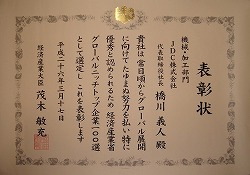 表彰状
機械・加工部門
JDC株式会社
代表取締役社長
橋川義人 殿
貴社は常日頃からグローバル展開
に向けてたゆまぬ努力を払い特に
優秀と認められるため経済産業省
グローバルニッチトップ企業一〇〇選
として選定しこれを表彰します
平成二十六年三月十七日
経済産業大臣 茂木敏充